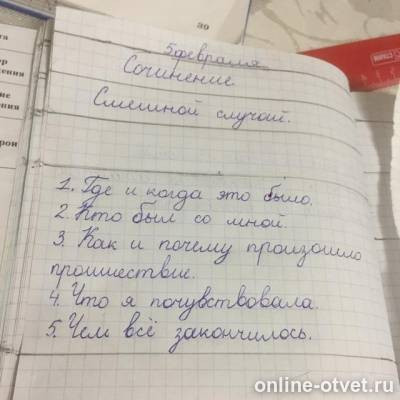 30
5 февраля
Сочинение.
Смешной случай.
1. Где и когда это было.
2. Кто был со мной.
3. Как и почему произошло
проишествие.
4. Что я почувствовала.
5. Чем всё закончилось.
online-otvet.ru